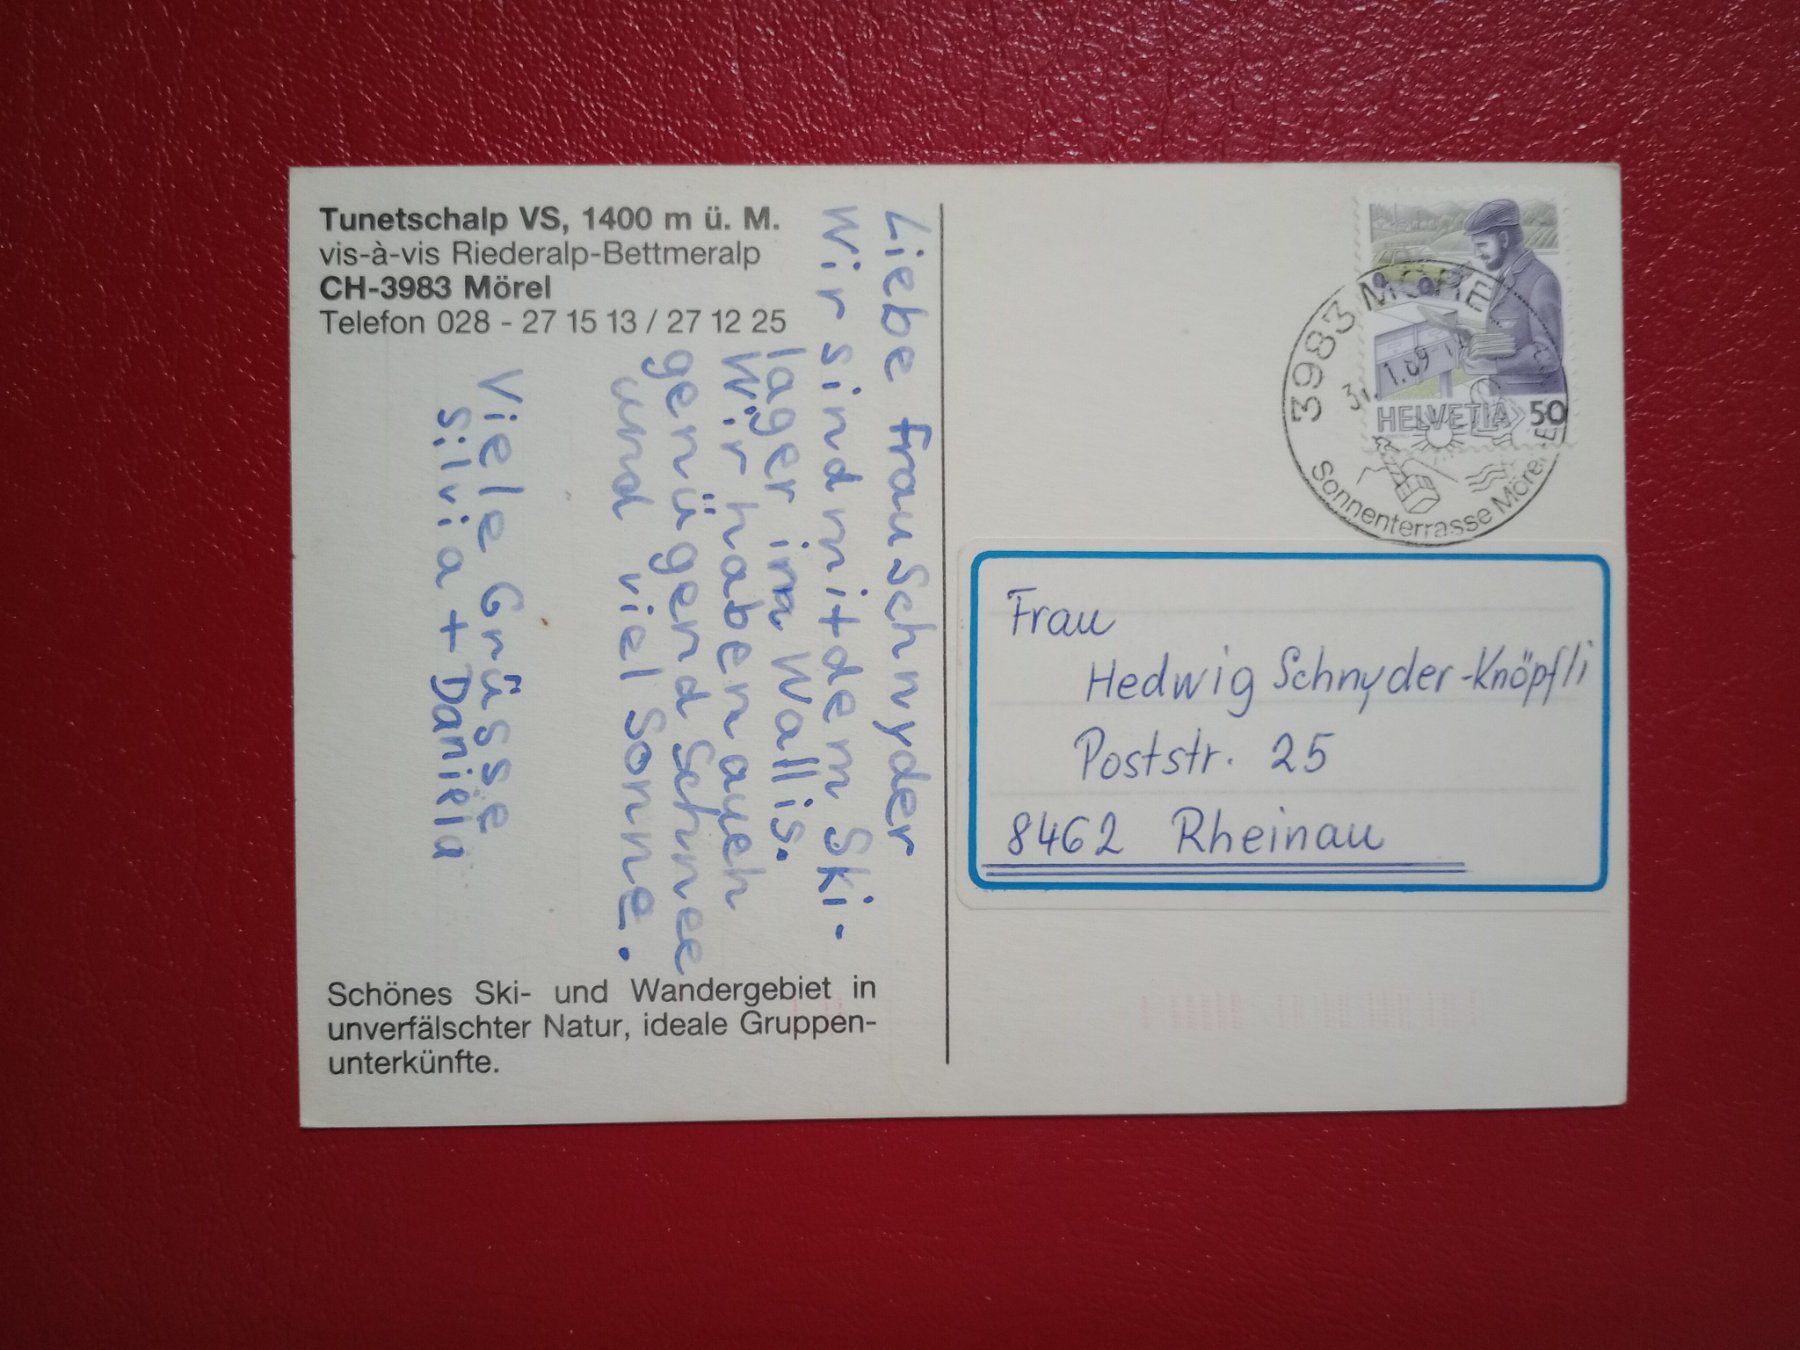 Tunetschalp VS, 1400 m ü. M.
vis-à-vis Riederalp-Bettmeralp
CH-3983 Mörel
Telefon 028 - 27 15 13 / 27 12 25
Liebe Frau Schnyder
Wir sind mit dem Ski-
lager im Wallis.
Wir haben auch
genügend Schnee
und viel Sonne.
Viele Grüsse
Silvia + Daniela
Schönes Ski- und Wandergebiet in
unverfälschter Natur, ideale Gruppen-
unterkünfte.
HELVETIA 50
3983 MÖREL
Sonnenterrasse Mörel
Frau
Hedwig Schnyder-Knöpfli
Poststr. 25
8462 Rheinau